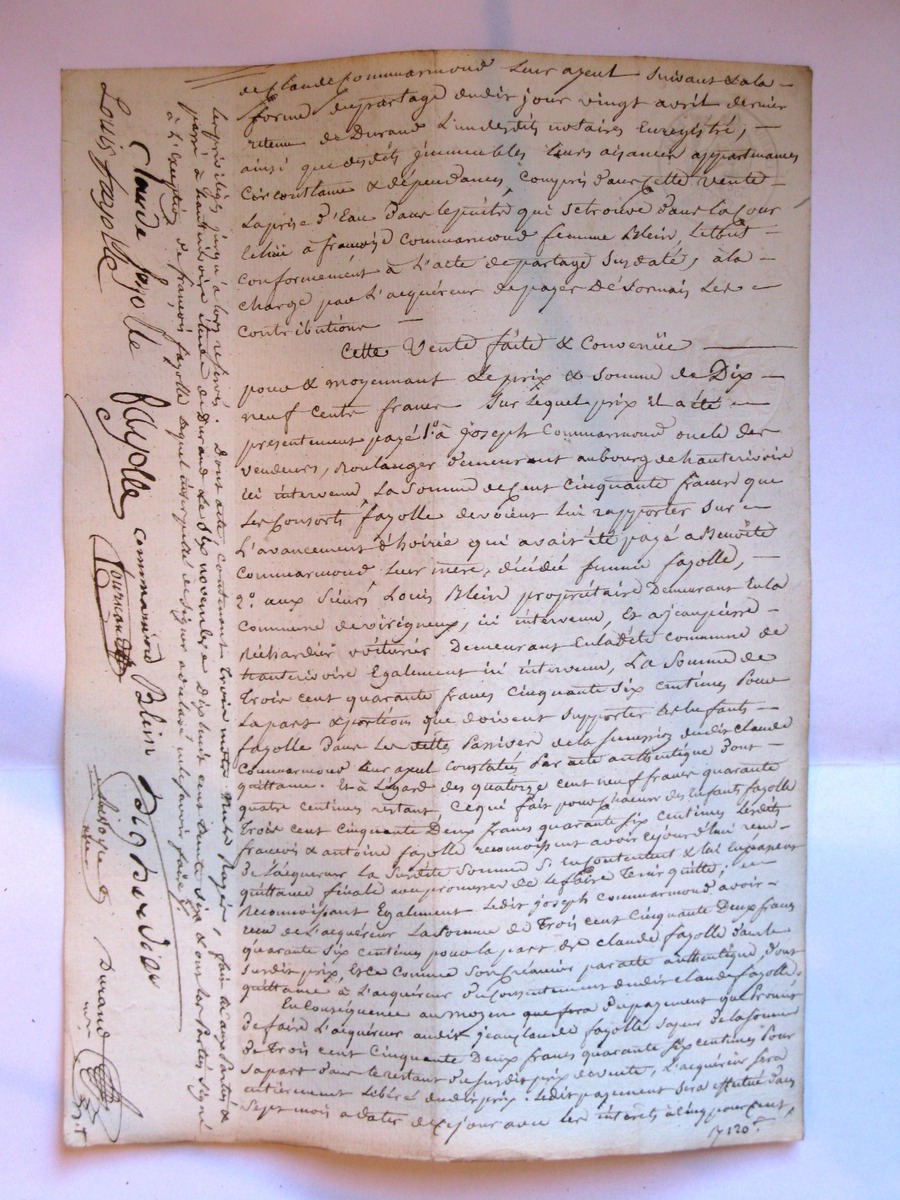 de Claude Commarmond leur ayeul suivant & à la
forme du partage dudit jour vingt avril dernier
retenu de Durand l'un desdits notaires Enregistré,
ainsi que desdits jmmeubles leurs aisances appartenances
Circonstances & dépendances, Compris dans cette vente
La prise d'Eau dans le puits qui se trouve dans la Cour
échue à françoise Commarmond femme Blein, le tout
conformément à l'acte de partage susdaté, à la
charge par l'acquéreur de payer Désormais Les
Contributions
Cette Vente faite & Convenüe
pour & moyennant Le prix & Somme de Dix
neuf cents francs Sur lequel prix il a été
présentement payé 1.° à joseph Commarmond oncle des
vendeurs, Boulanger demeurant au bourg de hauterivoire
ici intervenu La Somme de Cent Cinquante francs que
Les Consorts fayolle devoient lui rapporter sur
L'avancement d'hoirie qui avait été payé a Benoîte
Commarmond Leur mère, décédée femme fayolle,
2.° aux Sieurs Louis Blein propriétaire Demeurant En la
Commune de virigneux, ici intervenu, Et a jean pierre
Richardier voiturier Demeurant En la dite commune de
hauterivoire Egalement ici intervenu, La Somme de
Trois cent quarante francs Cinquante Six centimes Pour
La part & portions que doivent supporter les Enfants
fayolle Dans Les dettes Passives de la succession dudit Claude
Commarmond leur ayeul Constatés Par acte authentique Dont
quittance. Et à L'égard des quatorze cent neuf francs quarante
quatre centimes restant, Ce qui fait pour chacun des Enfants fayolle
Trois cent Cinquante Deux francs quarante Six centimes Lesdits
francois & antoine fayolle reconnoissent avoir cejourd'hui reçu
De l'acquéreur La Susdite Somme S'en Contentent & lui En passent
quittance finale avec promesse de le faire Tenir quitte;
Reconnoissant Egalement Ledit joseph Commarmond avoir
reçu de L'acquéreur La Somme de Trois cent Cinquante Deux francs
quarante Six centimes pour la part de Claude fayolle dans le
susdit prix, Et Ce Comme Son Créancier par acte authentique, Dont
quittance à L'acquéreur Du Consentement dudit Claude fayolle.
En Conséquence au moyen que fera Du payement que Promet
De faire L'acquéreur audit jean Claude fayolle de la somme
de Trois cent Cinquante Deux francs quarante Six centimes Pour
sa part dans le restant du susdit prix de vente, L'acquéreur Sera
entièrement Libéré dudit prix. Ledit payement Sera effectué Dans
Sept mois a dater de ce jour avec les intérets à Cinq pour cent,
7120
Les privilèges jusqu'à lors reservés. Dont acte, contenant trois mots rayés, fait & lu aux Parties &
passé à hauterivoire étude de Durand Le Six novembre Dix huit cent trente Six & ont Les Parties Signé
à l'exception de françois fayolle lequel interpellé de signer a déclaré ne savoir faire
Louis fayolle
Claude fayolle
fayolle
commarmond
Blein
Richardier
Durand